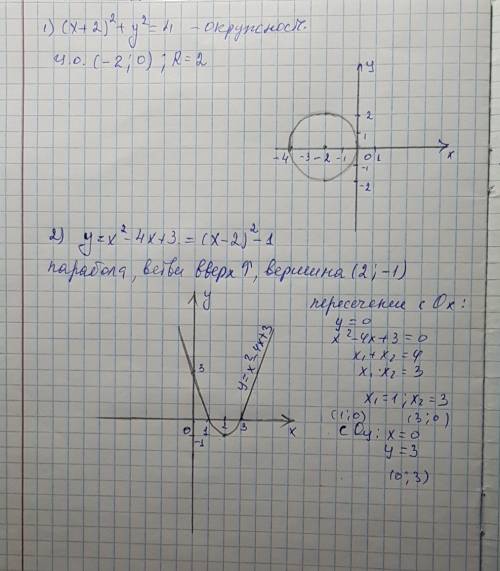 1) (x+2)²+y²=4 - окружность.
ц.о. (-2;0); R=2
y
2
1
-4 -3 -2 -1 0 1
x
-1
-2
2) y=x²-4x+3=(x-2)²-1
парабола, ветви вверх ↑, вершина (2;-1)
y
3
y=x²-4x+3
0 1 2 3 x
-1
пересечение с Ox:
y=0
x²-4x+3=0
x₁+x₂=4
x₁·x₂=3
x₁=1; x₂=3
(1;0) (3;0)
с Oy: x=0
y=3
(0;3)